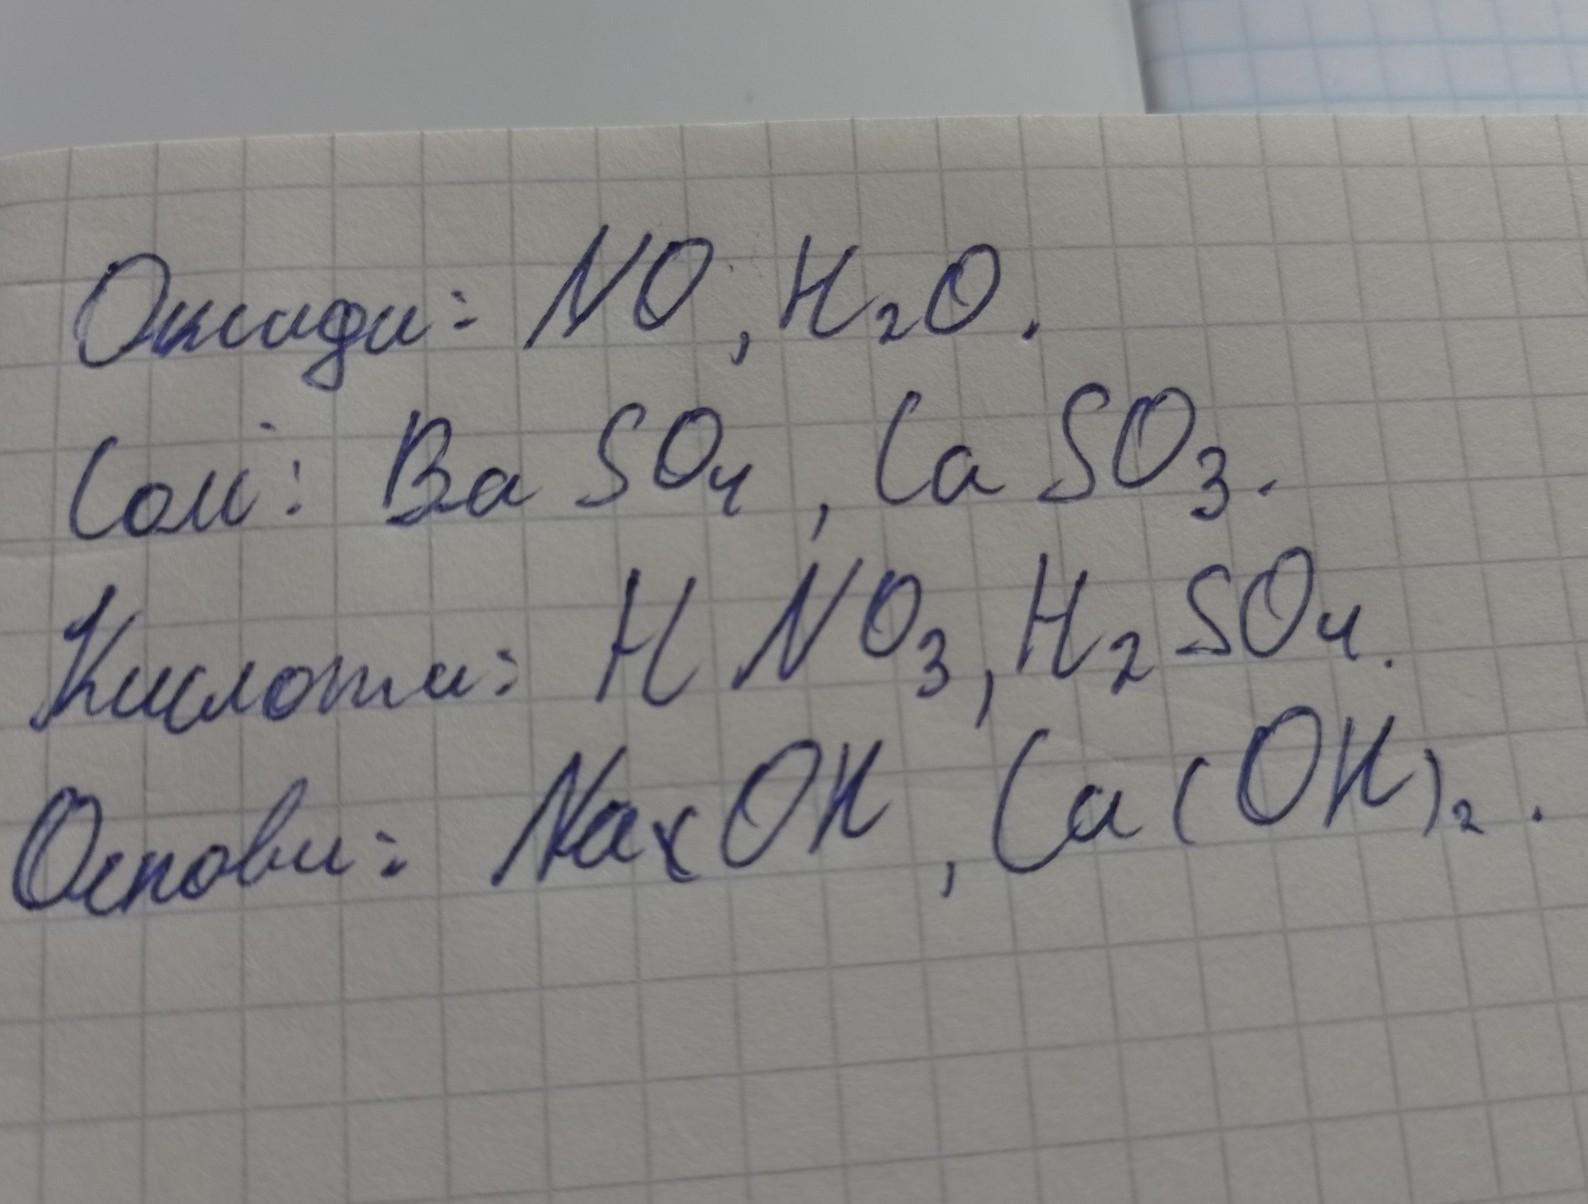 Оксиди: NO, H₂O.
Солі: BaSO₄, CaSO₃.
Кислоти: HNO₃, H₂SO₄.
Основи: NaOH, Ca(OH)₂.